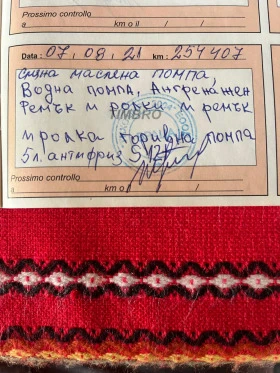 a
km o il / /
Prossimo controllo
Data: 07,08,21 km: 254407
смяна маслена помпа,
Водна помпа, Ангренажен
Ремък и ролки и ремък
и ролка горивна помпа
TIMBRO
5л. антифриз G12+
Prossimo controllo
a km o il / /